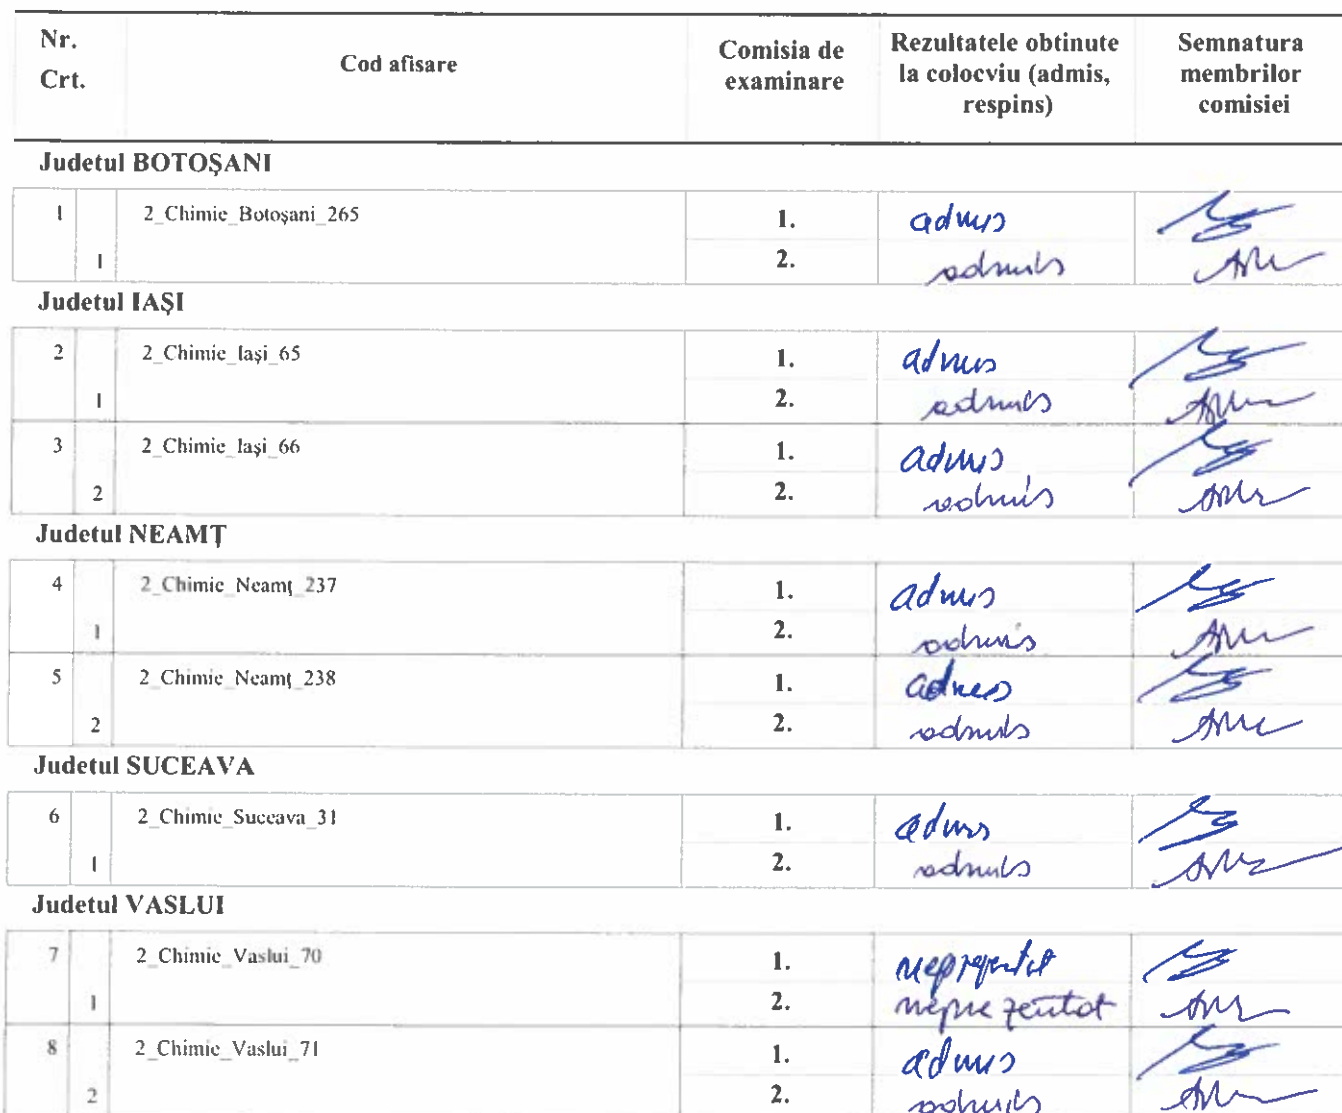 Nr. Crt. Cod afisare Comisia de examinare Rezultatele obtinute la colocviu (admis, respins) Semnatura membrilor comisiei
Judetul BOTOŞANI
1 2_Chimie_Botoşani_265 1. admis
1 2. admis
Judetul IAŞI
2 2_Chimie_Iaşi_65 1. admis
1 2. admis
3 2_Chimie_Iaşi_66 1. admis
2 2. admis
Judetul NEAMŢ
4 2_Chimie_Neamţ_237 1. admis
1 2. admis
5 2_Chimie_Neamţ_238 1. admis
2 2. admis
Judetul SUCEAVA
6 2_Chimie_Suceava_31 1. admis
1 2. admis
Judetul VASLUI
7 2_Chimie_Vaslui_70 1. neprezentat
1 2. neprezentat
8 2_Chimie_Vaslui_71 1. admis
2 2. admis